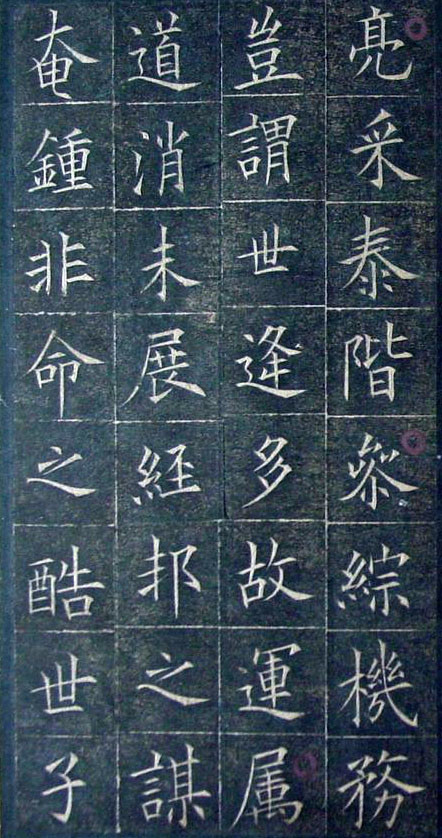 亮采泰階叅綜機務
豈謂世逄多故運属
道消未展經邦之謀
奄鍾非命之酷世子